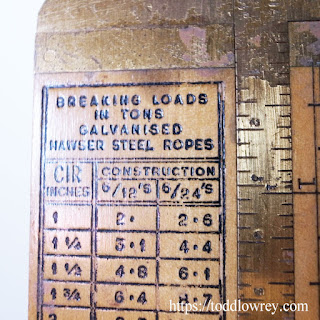 BREAKING LOADS
IN TONS
GALVANISED
HAWSER STEEL ROPES
CIR INCHES CONSTRUCTION
6/12'S 6/24'S
1 2· 2·6
1 1/4 3·1 4·4
1 1/2 4·8 6·1
1 3/4 6·4
https://toddlowrey.com/